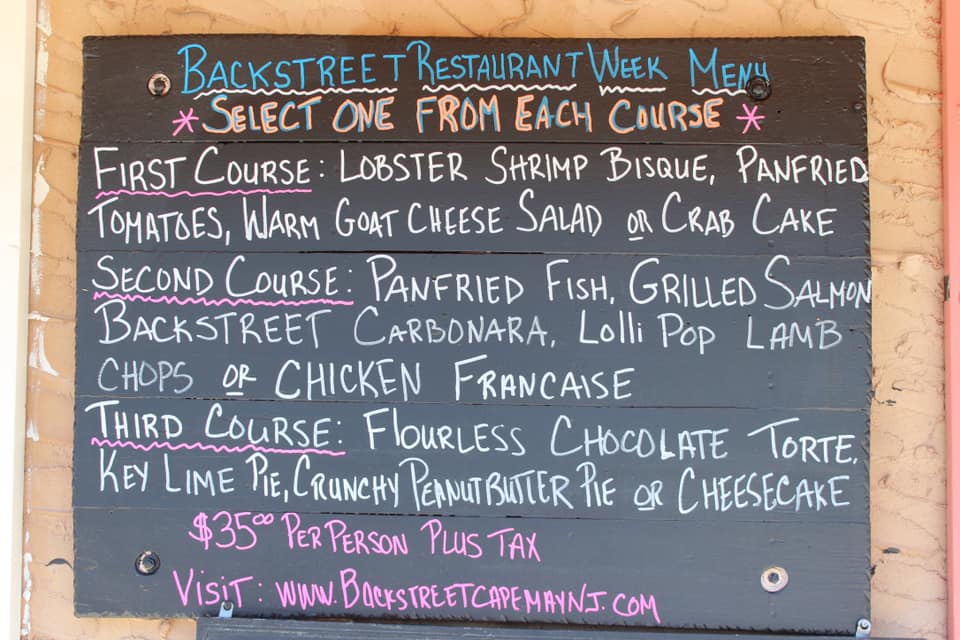 BACKSTREET RESTAURANT WEEK MENU
*SELECT ONE FROM EACH COURSE*
FIRST COURSE: LOBSTER SHRIMP BISQUE, PANFRIED
TOMATOES, WARM GOAT CHEESE SALAD OR CRAB CAKE
SECOND COURSE: PANFRIED FISH, GRILLED SALMON
BACKSTREET CARBONARA, Lolli Pop LAMB
CHOPS OR CHICKEN FRANCAISE
THIRD COURSE: FLOURLESS CHOCOLATE TORTE,
KEY LIME PIE, CRUNCHY PEANUT BUTTER PIE OR CHEESECAKE
$35⁰⁰ PER PERSON PLUS TAX
VISIT: WWW.BACKSTREETCAPEMAYNJ.COM